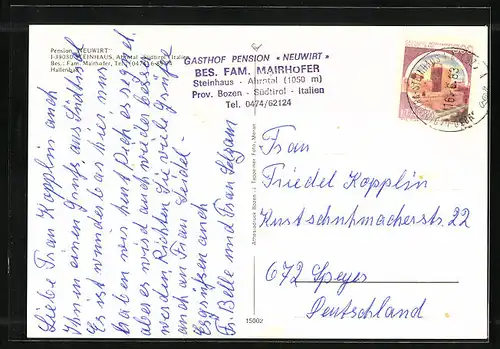 Pension "NEUWIRT"
I-39030 STEINHAUS, Ahrntal Südtirol Italien
Bes.: Fam. Mairhofer, Tel. 0474/62124
Hallenbad
GASTHOF PENSION «NEUWIRT»
BES. FAM. MAIRHOFER
Steinhaus - Ahrntal (1050 m)
Prov. Bozen - Südtirol - Italien
Tel. 0474/62124
Liebe Frau Kopplin auch
Ihnen einen Gruß aus Südtirol
Es ist wunderbar hier nur
haben wir heut Pech es regnet
aber es wird auch wieder besser
werden Richten Sie viele Grüße
auch an Frau Seidel
Es grüßen auch
Fr. Belle und Frau
Frau
Friedel Kopplin
Kurtschuhmacherstr. 22
672 Speyer
Deutschland
15002